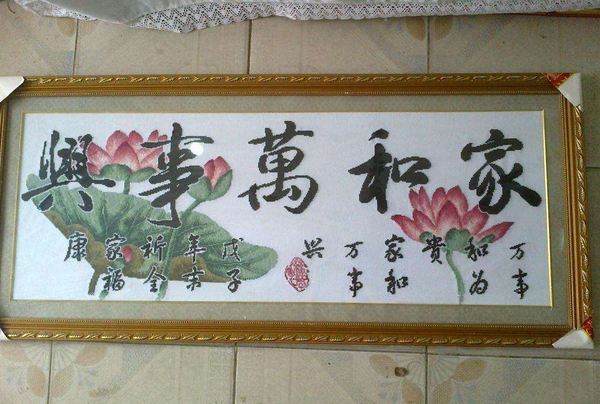 家和萬事興
万事
和为
贵
家和
万事
兴
戊子
年
祈全
家福
康